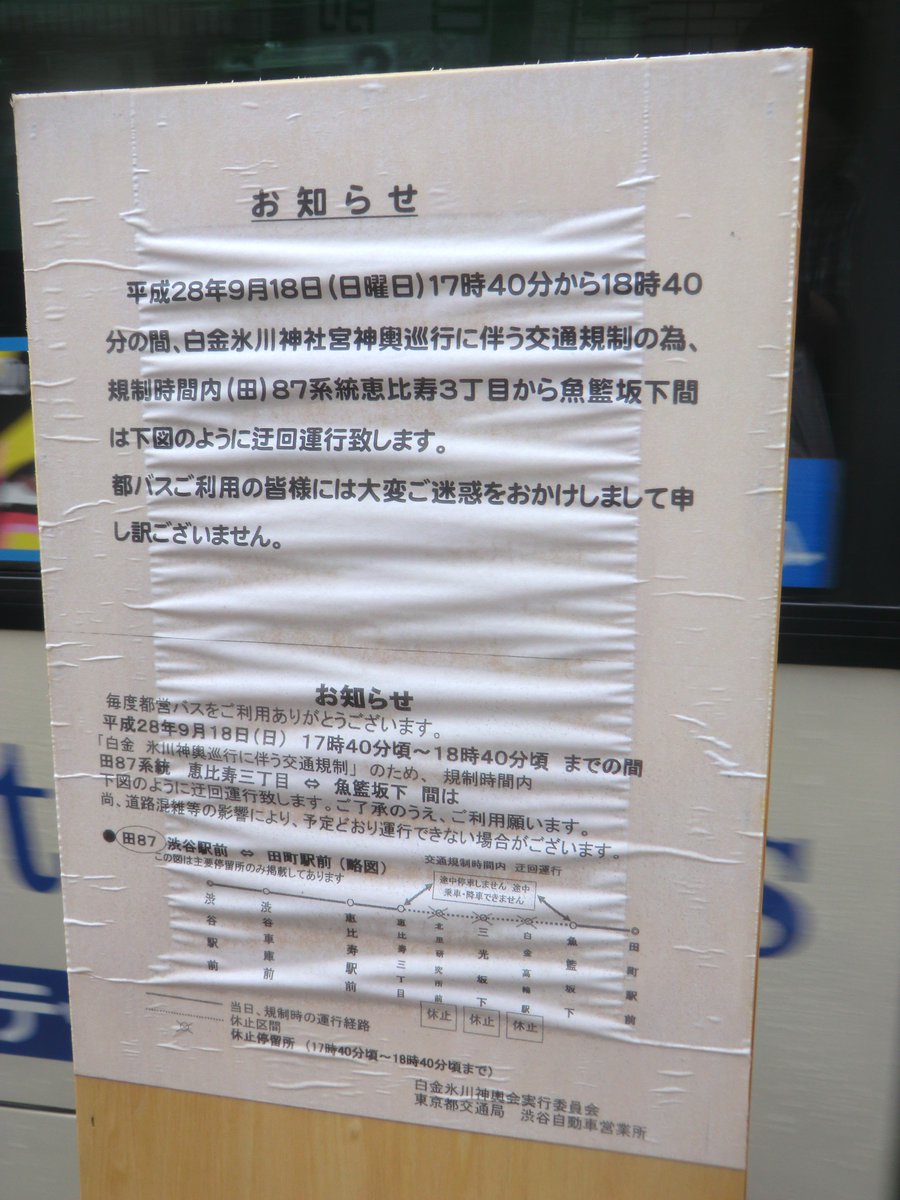 お知らせ
平成28年9月18日(日曜日)17時40分から18時40
分の間、白金氷川神社宮神輿巡行に伴う交通規制の為、
規制時間内(田)87系統恵比寿3丁目から魚籃坂下間
は下図のように迂回運行致します。
都バスご利用の皆様には大変ご迷惑をおかけしまして申
し訳ございません。
お知らせ
毎度都営バスをご利用ありがとうございます。
平成28年9月18日(日) 17時40分頃～18時40分頃 までの間
「白金 氷川神輿巡行に伴う交通規制」 のため、 規制時間内
田87系統 恵比寿三丁目 ⇔ 魚籃坂下 間は
下図のように迂回運行致します。ご了承のうえ、ご利用願います。
尚、道路混雑等の影響により、予定どおり運行できない場合がございます。
●田87 渋谷駅前 ⇔ 田町駅前(略図)
この図は主要停留所のみ掲載してあります
交通規制時間内 迂回運行
途中停車しません 途中
乗車・降車できません
渋谷駅前
渋谷車庫前
恵比寿駅前
恵比寿三丁目
北里研究所前
三光坂下
白金高輪駅前
魚籃坂下
田町駅前
休止
休止
休止
当日、規制時の運行経路
休止区間
休止停留所 (17時40分頃～18時40分頃まで)
白金氷川神輿会実行委員会
東京都交通局 渋谷自動車営業所